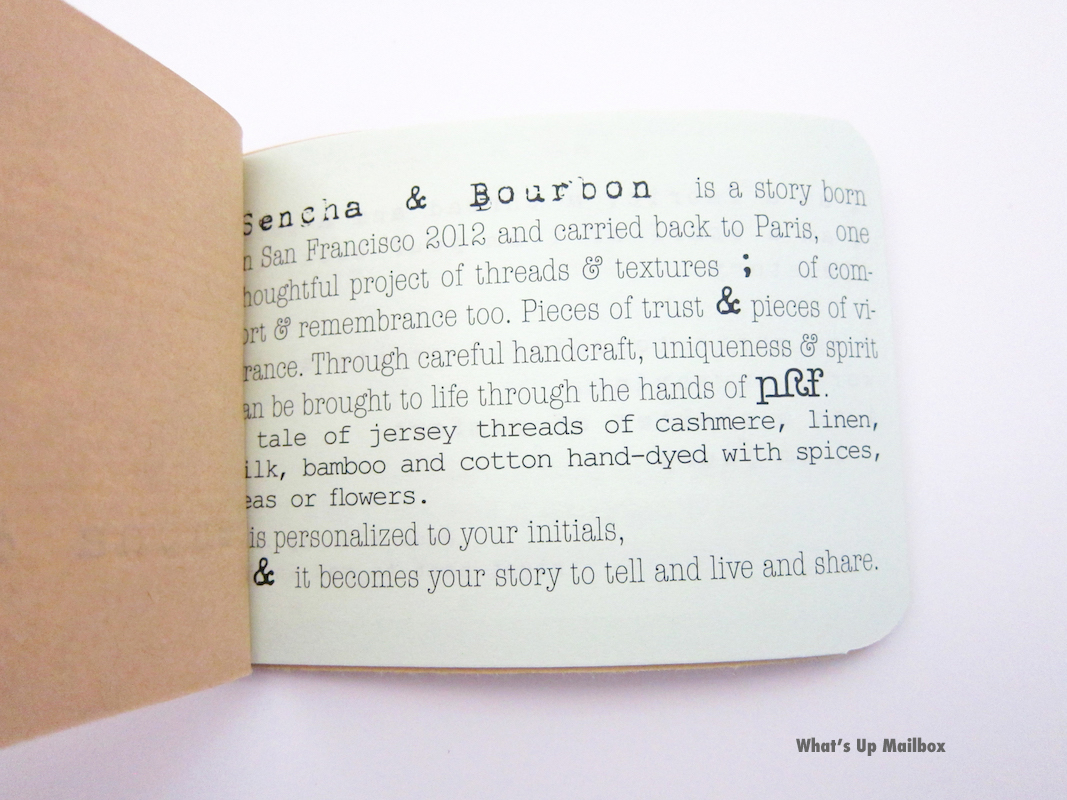 Sencha & Bourbon is a story born
n San Francisco 2012 and carried back to Paris, one
houghtful project of threads & textures ; of com-
ort & remembrance too. Pieces of trust & pieces of vi-
rance. Through careful handcraft, uniqueness & spirit
an be brought to life through the hands of
tale of jersey threads of cashmere, linen,
ilk, bamboo and cotton hand-dyed with spices,
eas or flowers.
is personalized to your initials,
& it becomes your story to tell and live and share.
What's Up Mailbox